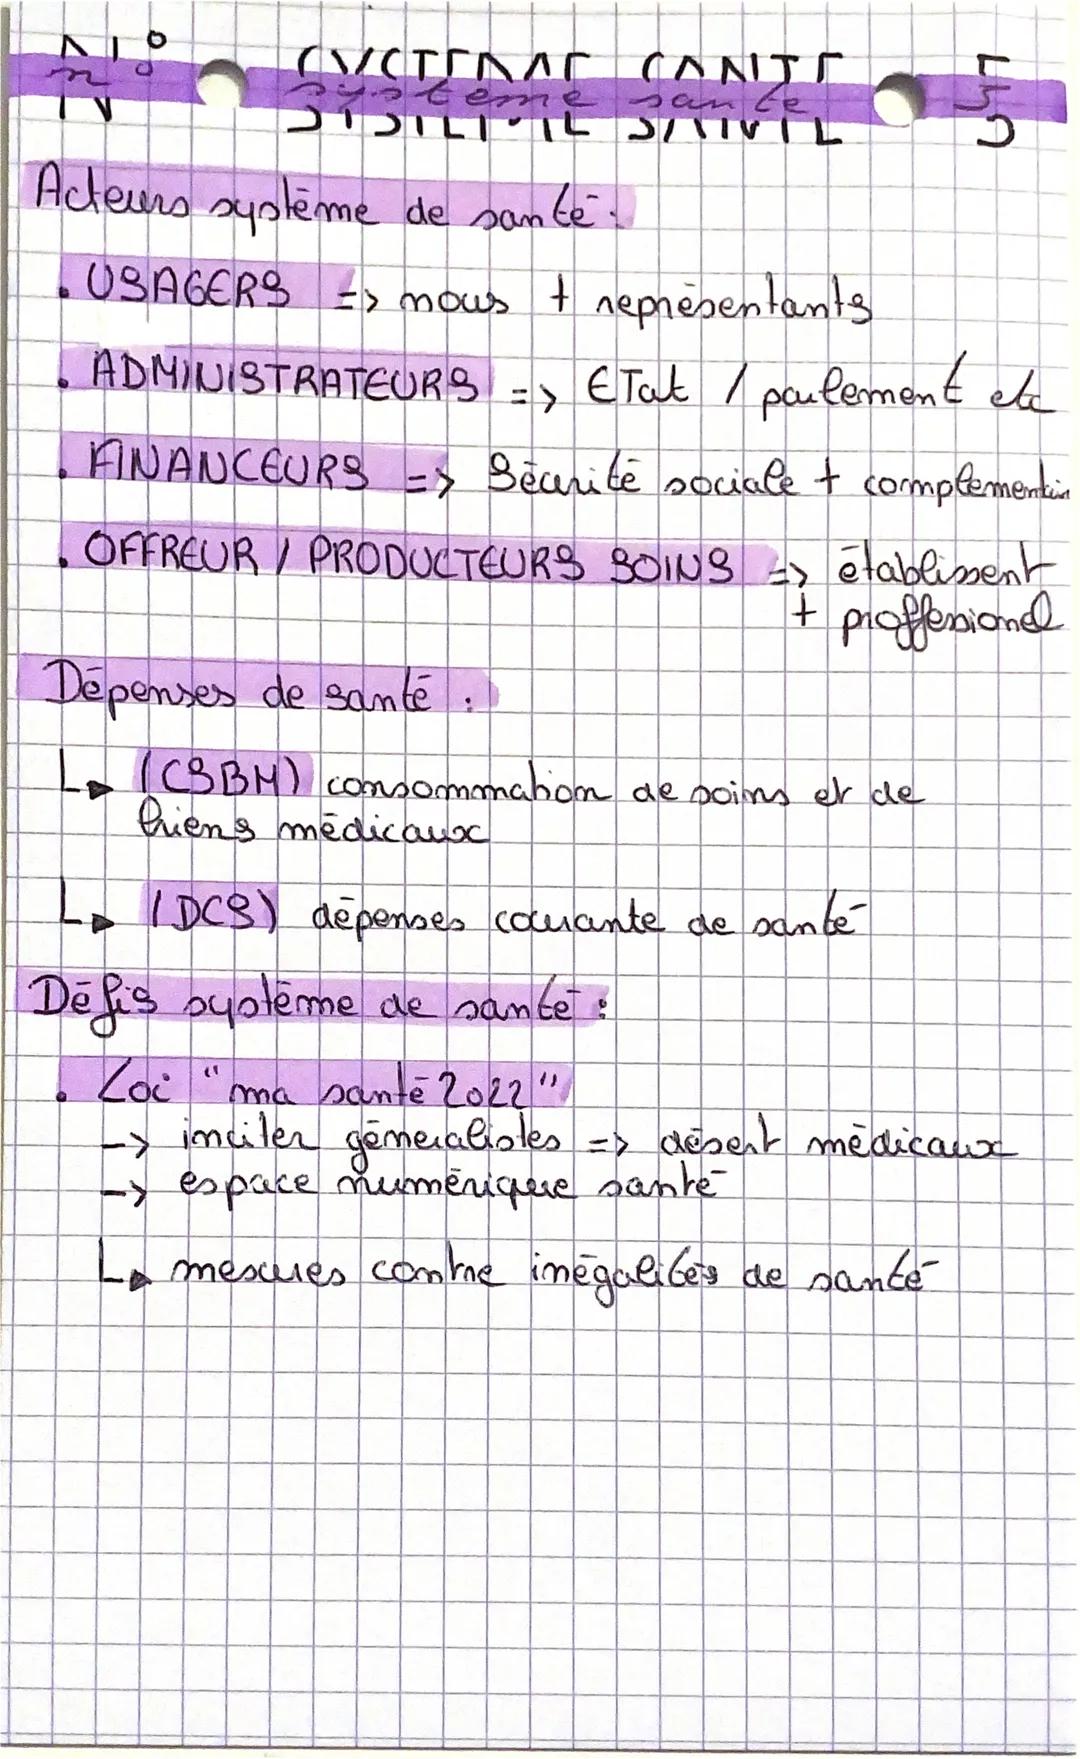 N° système santé 5
Acteurs système de santé :
. USAGERS => nous + représentants
. ADMINISTRATEURS => ETat / parlement etc
. FINANCEURS => Sécurité sociale + complementair
. OFFREUR / PRODUCTEURS SOINS => établissent
+ proffesionel
Dépenses de santé :
↳ (CSBM) consommation de soins et de
biens médicaux
↳ (DCS) dépenses courante de santé
Défis système de santé :
. Loi "ma santé 2022"
-> inciter géneralistes => désert médicaux
-> espace numérique santé
↳ mesures contre inégalités de santé